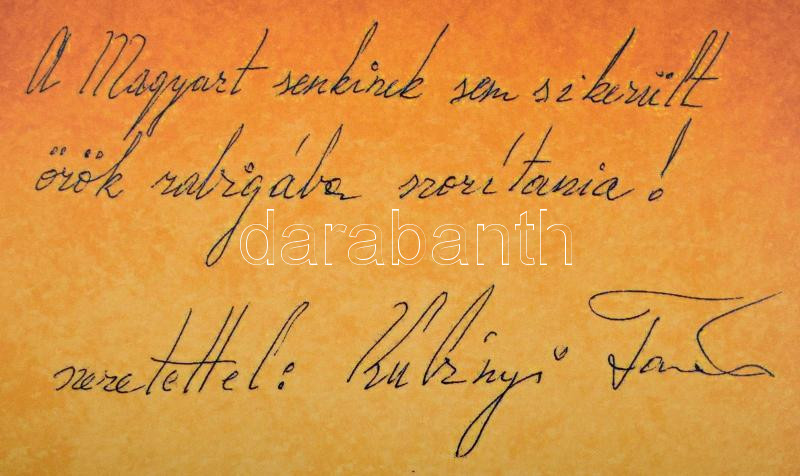 A Magyart senkinek sem sikerült
örök rabigába szorítania!
darabanth
szeretettel: Kubínyi Tamás